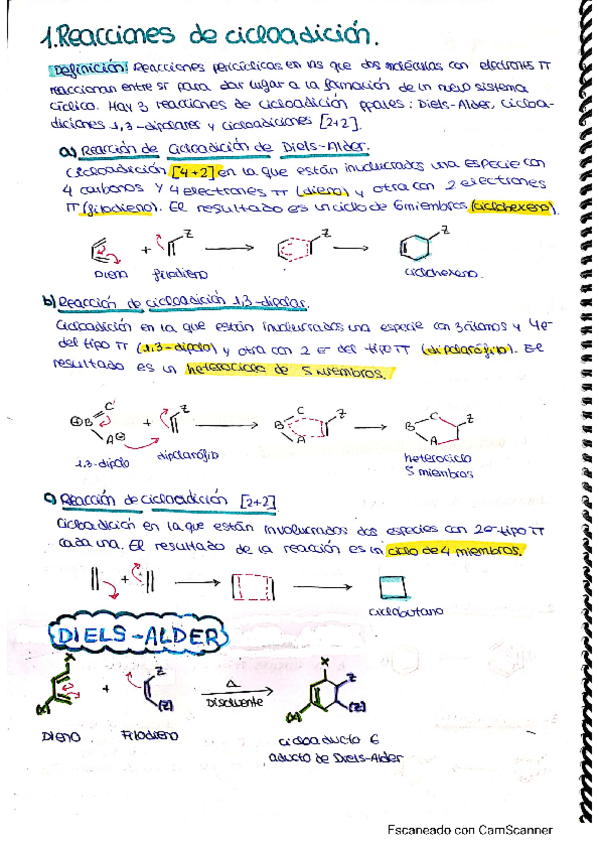 1. Reacciones de cicloadición.
Definición: Reacciones pericíclicas en las que dos moléculas con electrones π
reaccionan entre sí para dar lugar a la formación de un nuevo sistema
cíclico. Hay 3 reacciones de cicloadición ppales: Diels-Alder, cicloa-
diciones 1,3-dipolares y cicloadiciones [2+2].
a) Reacción de Cicloadición de Diels-Alder.
Cicloadición [4+2] en la que están involucrados una especie con
4 carbonos y 4 electrones π (dieno) y otra con 2 electrones
π (filodieno). El resultado es un ciclo de 6 miembros (ciclohexeno).
+ Z → Z → Z
Dieno filodieno ciclohexeno.
b) Reacción de cicloadición 1,3-dipolar.
Cicloadición en la que están involucrados una especie con 3 átomos y 4e-
del tipo π (1,3-dipolo) y otra con 2 e- del tipo π (dipolarófilo). El
resultado es un heterociclo de 5 miembros.
⊕B C A⊖ + Z → B C A Z → B C A Z
1,3-dipolo dipolarófilo heterociclo
5 miembros
c) Reacción de cicloadición [2+2]
Cicloadición en la que están involucrados dos especies con 2e- tipo π
cada una. El resultado de la reacción es un ciclo de 4 miembros.
+ → →
ciclobutano
DIELS-ALDER
X (X) + Z (Z) Δ Disolvente X Z (X) (Z)
Dieno Filodieno cicloaducto ó
aducto de Diels-Alder
Escaneado con CamScanner